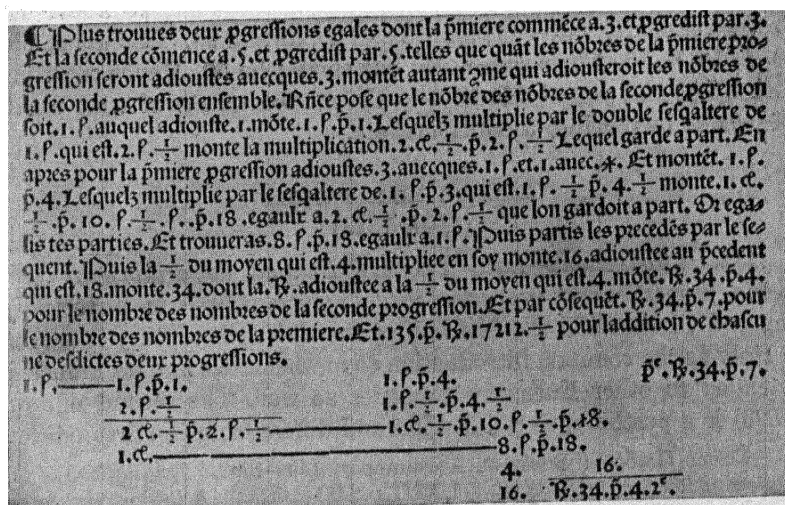 ¶ Plus trouues deux ꝓgressions egales dont la p̃miere commēce a.3.et ꝓgredist par.3.
Et la seconde cōmence a.5.et ꝓgredist par.5.telles que quāt les nōbres de la p̃miere pro⸗
gression seront adioustes auecques.3.montēt autant ꝯme qui adiousteroit les nōbres de
la seconde ꝓgression ensemble.Rñce pose que le nōbre des nōbres de la seconde ꝓgression
soit.1.ſ.auquel adiouste.1.mōte.1.ſ.p̃.1.Lesquelz multiplie par le double sesqaltere de
1.ſ.qui est.2.ſ.½ monte la multiplication.2.ct.½.p̃.2.ſ.½ Lequel garde a part.En
apres pour la p̃miere ꝓgression adioustes.3.auecques.1.ſ.et.1.auec.*.Et montēt.1.ſ.
p̃.4.Lesquelz multiplie par le sesqaltere de.1.ſ.p̃.3.qui est.1.ſ.½ p̃.4.½ monte.1.ct.
½.p̃.10.ſ.½.ſ..p̃.18.egaulx a.2.ct.½.p̃.2.ſ.½ que lon gardoit a part.Or ega⸗
lis tes parties.Et trouueras.8.ſ.p̃.18.egaulx a.1.ſ.Puis partis les precedēs par le se⸗
quent.Puis la ½ du moyen qui est.4.multipliee en soy monte.16.adioustee au p̃cedent
qui est.18.monte.34.dont la.℞.adioustee a la ½ du moyen qui est.4.mōte.℞.34.p̃.4.
pour le nombre des nombres de la seconde progression.Et par cōsequēt.℞.34.p̃.7.pour
le nombre des nombres de la premiere.Et.135.p̃.℞.17212.½ pour laddition de chascu
ne desdictes deux progressions.
1.ſ.——1.ſ.p̃.1. 1.ſ.p̃.4. p̃ᵉ.℞.34.p̃.7.
2.ſ.½ 1.ſ.½.p̃.4.½
2 ct.½ p̃.2.ſ.½——1.ct.½.p̃.10.ſ.½.p̃.18.
1.ct.——8.ſ.p̃.18.
4. 16.
16. ℞.34.p̃.4.2ᵉ.